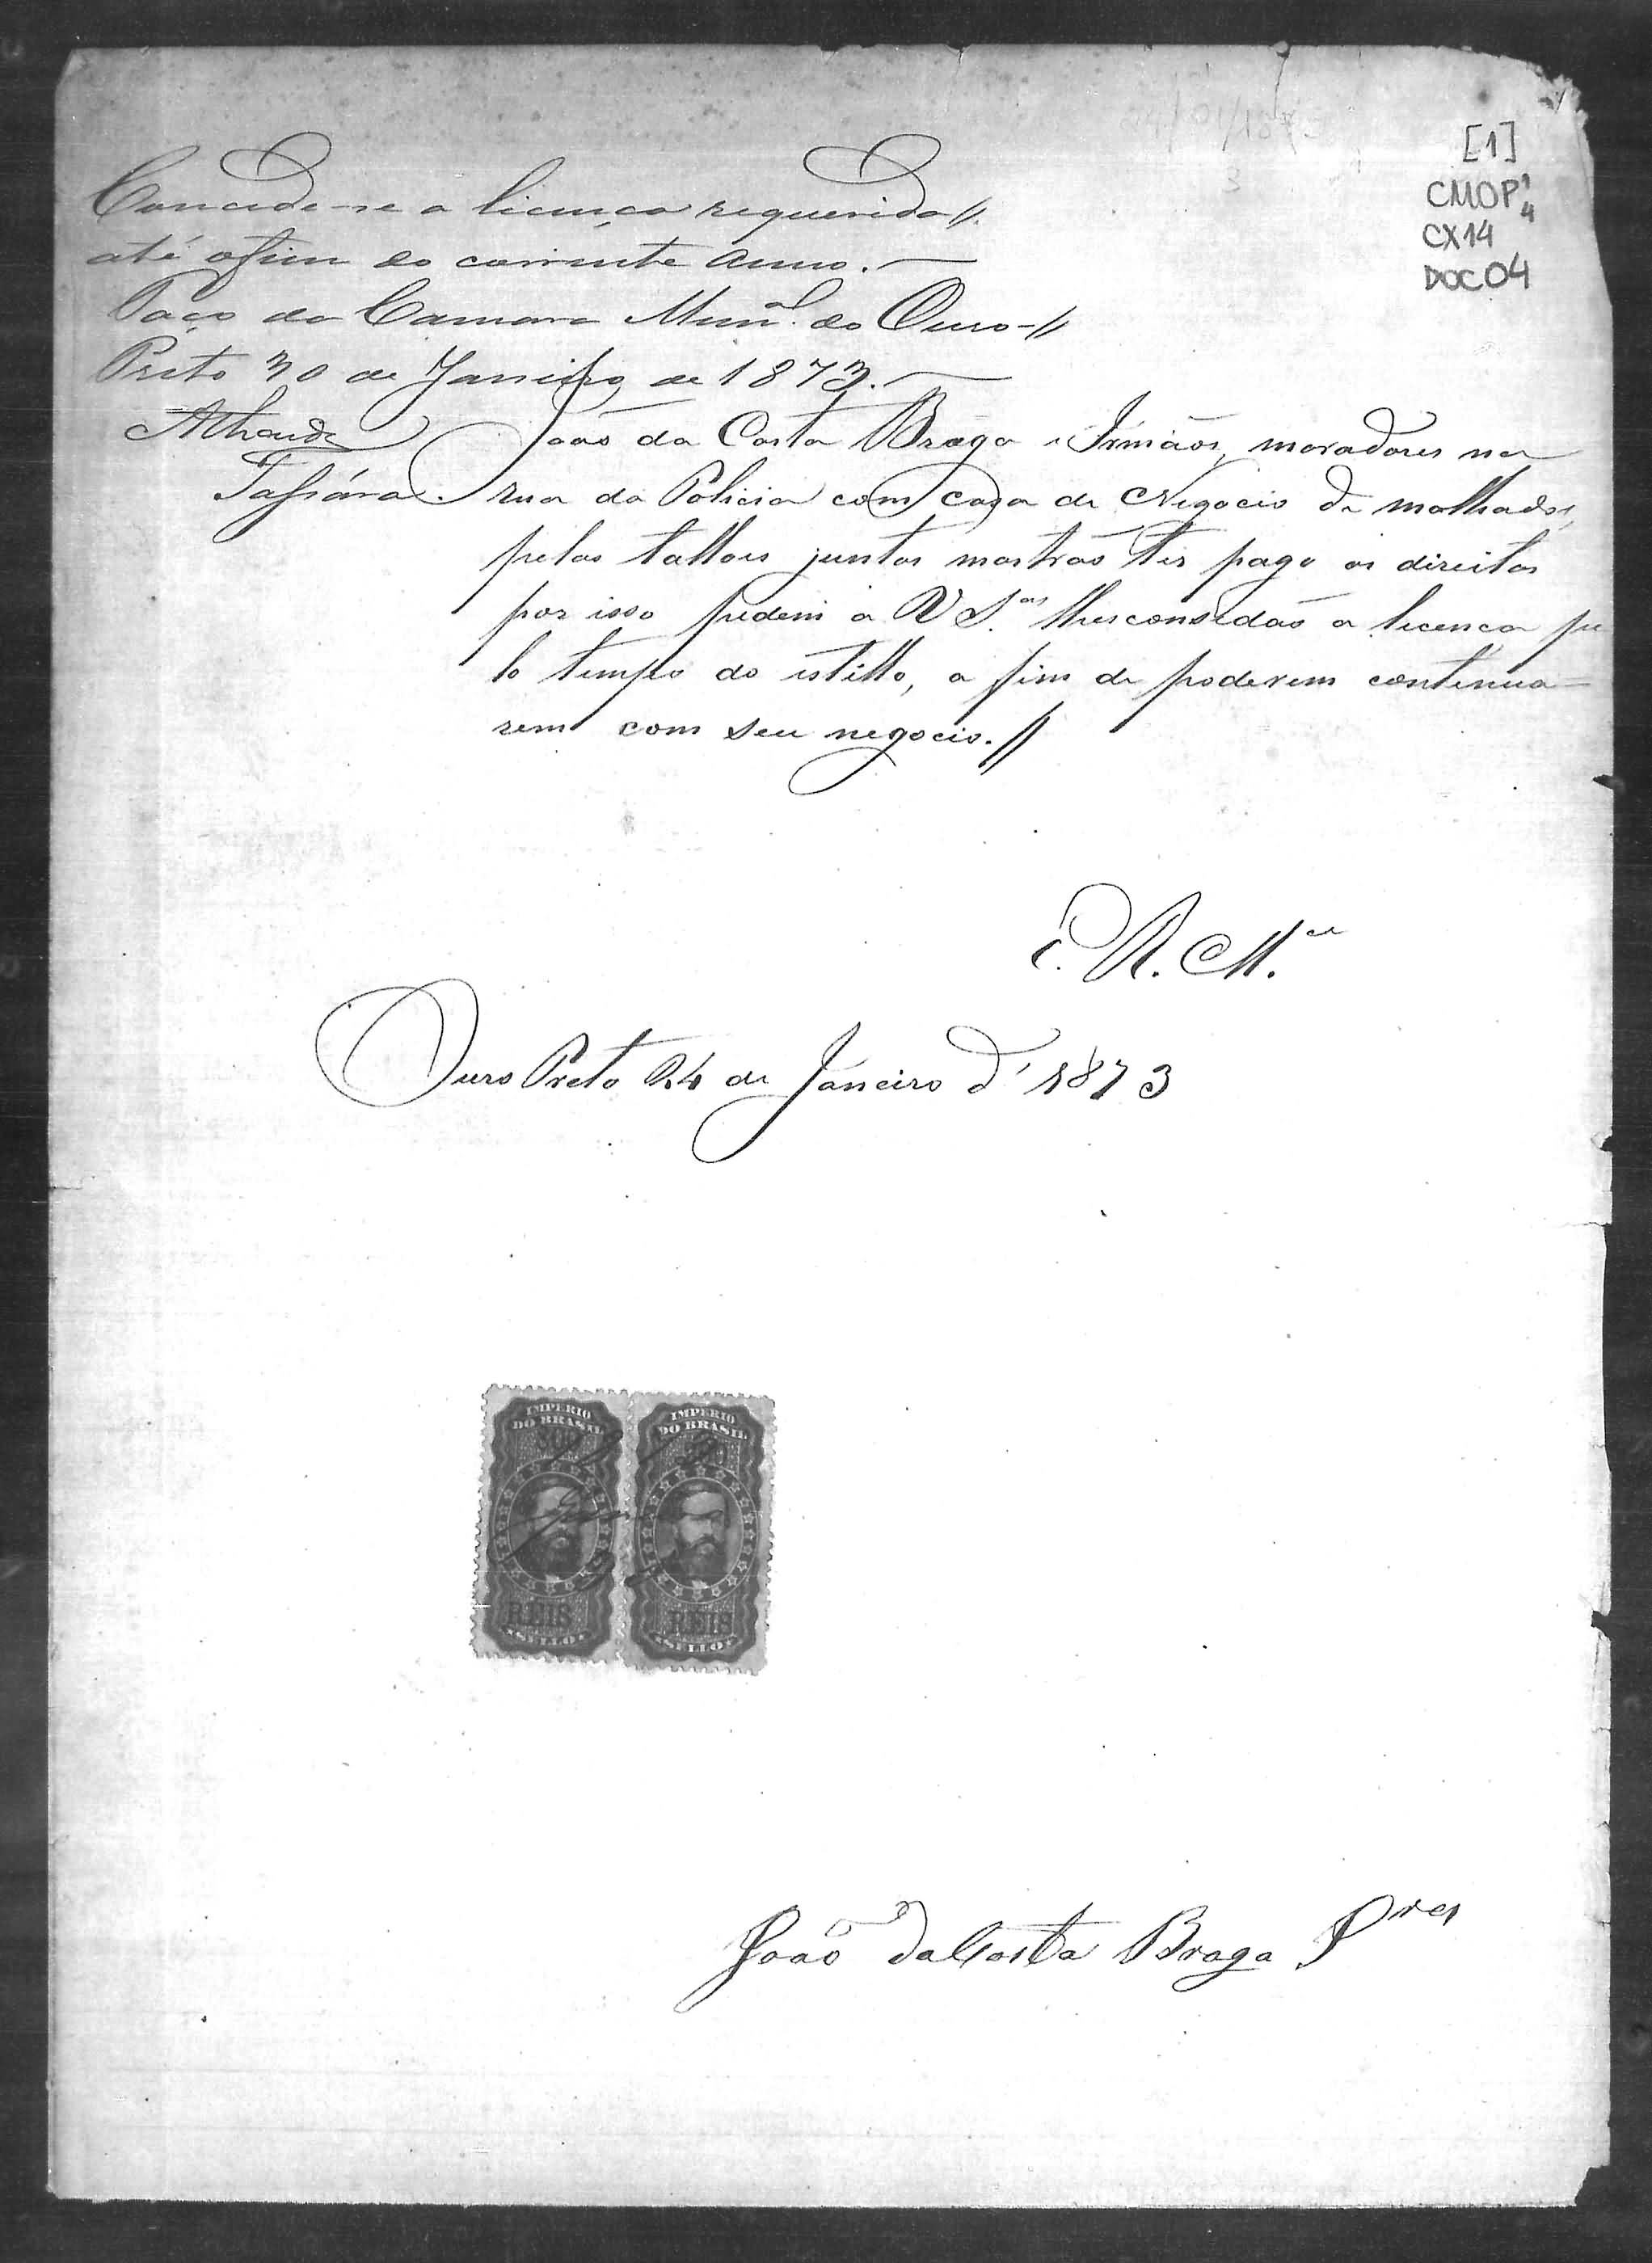 24/01/1873
3
[1]
CMOP 1/4
CX14
DOC 04
Concede-se a licença requerida
até o fim do corrente anno.
Paço da Camara Mun.al do Ouro-
Preto 30 de Janeiro de 1873.
Tassára.
João da Costa Braga e Irmãos, moradores na
rua da Policia com caza de Negocio de molhados,
pelos tallois juntos mostrão ter pago os direitos
por isso pedem a V S.as lhes consedão a licença pe
lo tempo do istillo, a fim de poderem continua-
rem com seu negocio.
E. R. M.ce
Ouro Preto 24 de Janeiro d' 1873
IMPERIO DO BRASIL
IMPERIO DO BRASIL
200
REIS
REIS
SELLO
SELLO
João da Costa Braga